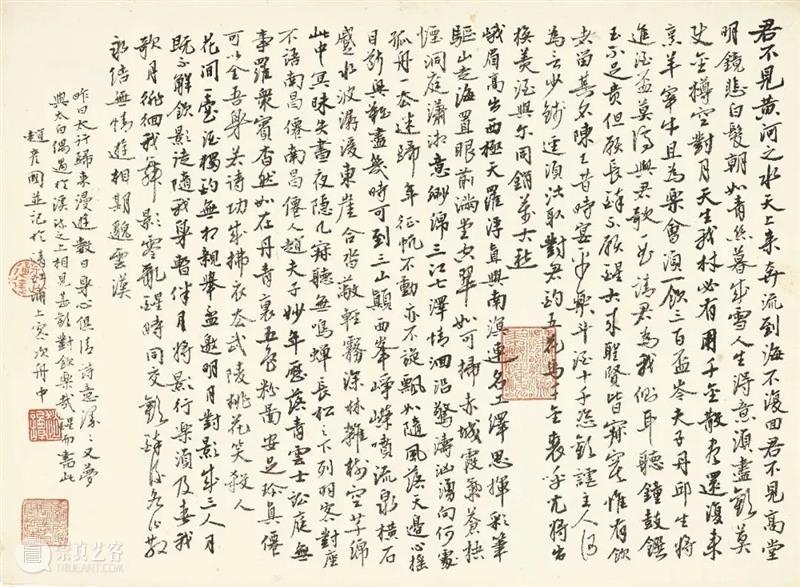 君不見黄河之水天上来奔流到海不復回君不見高堂
明鏡悲白髮朝如青絲暮成雪人生得意須盡歡莫
使金樽空對月天生我材必有用千金散盡還復来
烹羊宰牛且為樂會須一飲三百盃岑夫子丹邱生將
進酒盃莫停與君歌一曲請君為我側耳聽鐘鼓饌
玉不足貴但願長醉不願醒古来聖賢皆寂寞惟有飲
者留其名陳王昔時宴平樂斗酒十千恣歡謔主人何
為言少錢逕須沽取對君酌五花馬千金裘呼兒將出
換美酒與尔同銷萬古愁
峨眉高出西極天羅浮直與南溟連名工繹思揮彩筆
驅山走海置眼前滿堂空翠如可掃赤城霞氣蒼梧
煙洞庭瀟湘意渺綿三江七澤情洄沿驚濤洶湧向何處
孤舟一去迷歸年征帆不動亦不旋飄如隨風落天邊心搖
目斷興難盡幾時可到三山巔西峯崢嶸噴流泉横石
蹙水波潺湲東崖合沓蔽輕霧深林雜樹空芊綿
此中冥昧失晝夜隱几寂聽無鳴蟬長松之下列羽客對座
不語南昌僊南昌僊人趙夫子妙年歷落青雲士訟庭無
事羅衆賓杳然如在丹青裏五色粉圖安足珍真僊
可以全吾身若待功成拂衣去武陵桃花笑殺人
花間一壺酒獨酌無相親舉盃邀明月對影成三人月
既不解飲影徒隨我身暫伴月將影行樂須及春我
歌月徘徊我舞影零亂醒時同交歡醉後各分散
永結無情遊相期邈雲漢
昨日太行歸来漫遊數日身心俱清詩意深々又夢
與太白偶遇於溪之上相見甚歡對飲樂哉醒而書此
趙彦國並記於清浦上客次舟中
崇真艺客